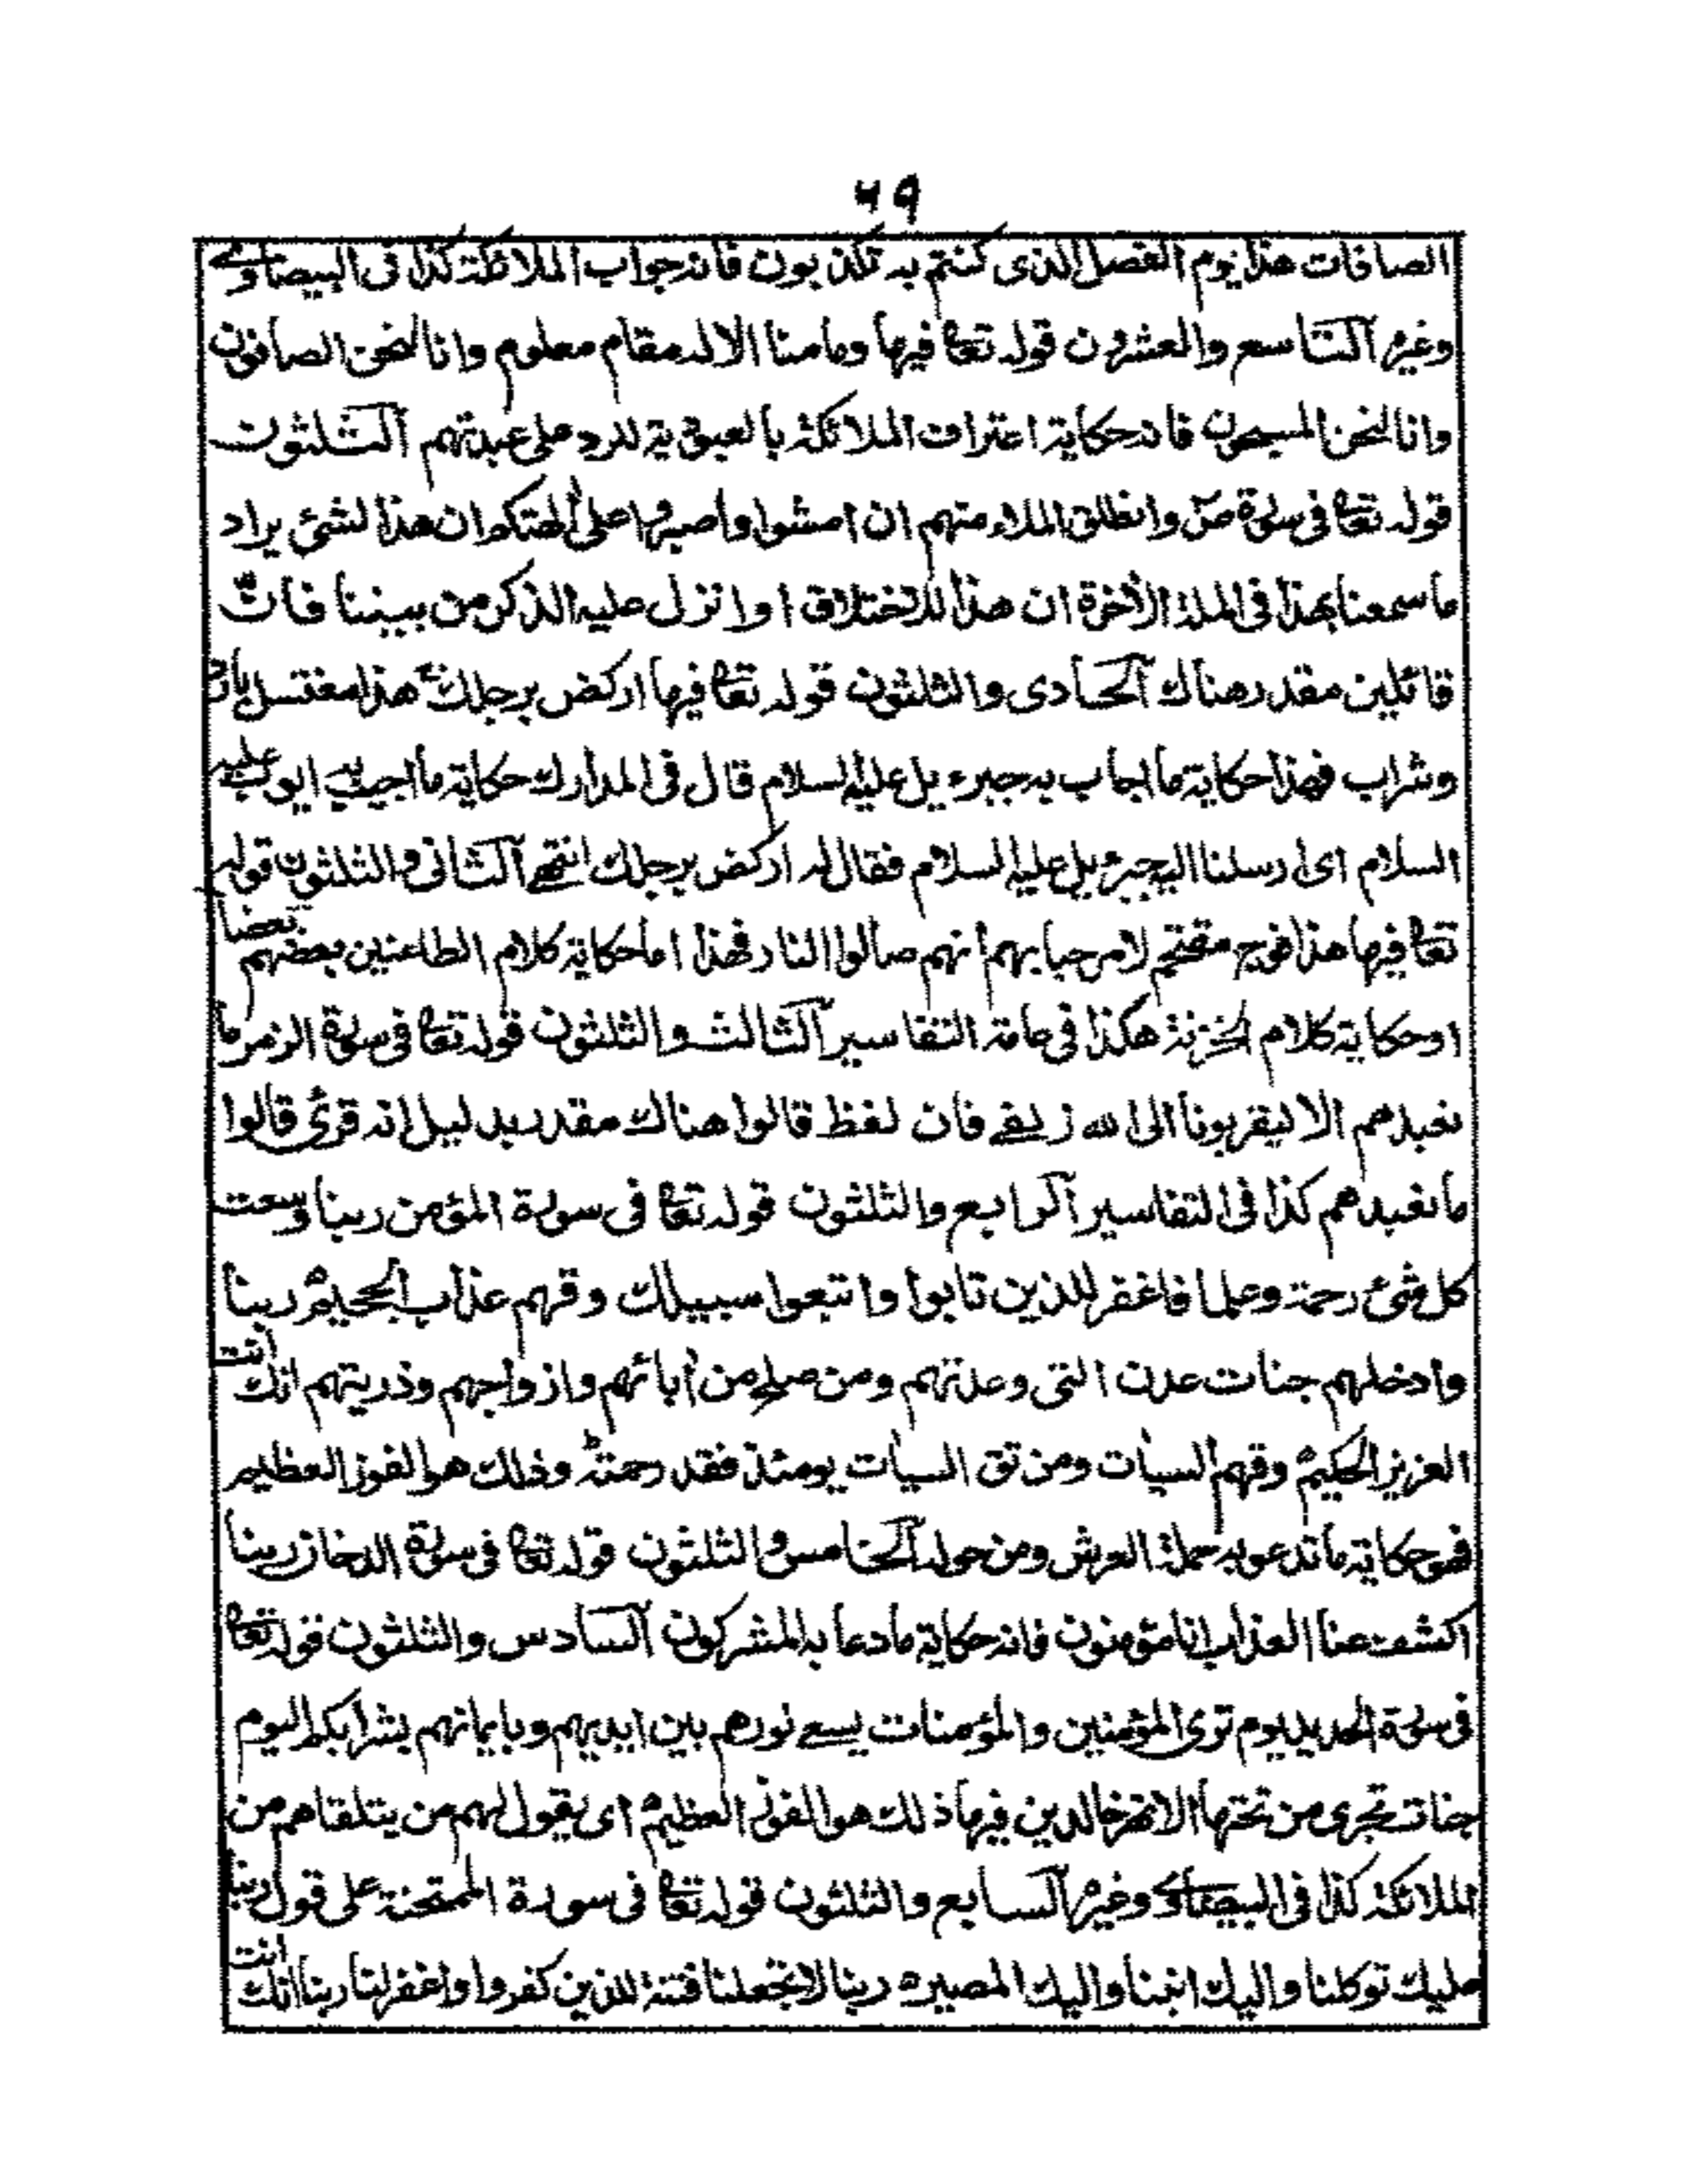 ٦٩
الصافات هذا يوم الفصل الذى كنتم به تكذبون فانه جواب الملائكة كذا فى البيضاوے
وغيره التاسع والعشرون قوله تعا فيها ومامنا الا له مقام معلوم وانا لنحن الصافون
وانا لنحن المسبحون فانه حكاية اعتراف الملائكة بالعبودية للرد على عبدتهم الثلثون
قوله تعا فى سورة صٓ وانطلق الملاء منهم ان امشوا واصبروا على الهتكم ان هذا لشئ يراد
ماسمعنا بهذا فى الملة الآخرة ان هذا الا اختلاق اوانزل عليه الذكر من بيننا فانّ
قائلين مقدر هناك الحادى والثلثون قوله تعا فيها اركض برجلك هذا مغتسل بارد
وشراب فهذا حكاية ما اجاب به جبرءيل عليه السلام قال فى المدارك حكاية ما اجيب به ايوب عليه
السلام اى ارسلنا اليه جبرءيل عليه السلام فقال له اركض برجلك انتهے الثانى والثلثون قوله
تعا فيها هذا فوج مقتحم لامرحبا بهم انهم صالوا النار فهذا اما حكاية كلام الطاغين بعضهم بعضا
اوحكاية كلام الخزنة هكذا فى عامة التفاسير الثالث والثلثون قوله تعا فى سورة الزمر ما
نعبدهم الا ليقربونا الى الله زلفے فان لفظ قالوا هناك مقدر بدليل انه قرئ قالوا
مانعبدهم كذا فى التفاسير الرابع والثلثون قوله تعا فى سورة المؤمن ربنا وسعت
كل شئ رحمة وعلما فاغفر للذين تابوا واتبعوا سبيلك وقهم عذاب الجحيم ربنا
وادخلهم جنات عدن التى وعدتهم ومن صلح من أبائهم وازواجهم وذريتهم انك انت
العزيز الحكيم وقهم السيأت ومن تق السيأت يومئذ فقد رحمته وذلك هو الفوز العظيم
فهو حكاية ماتدعو به حملة العرش ومن حوله الخامس والثلثون قوله تعا فى سورة الدخان ربنا
اكشف عنا العذاب انا مؤمنون فانه حكاية مادعا به المشركون السادس والثلثون قوله تعا
فى سورة الحديد يوم ترى المؤمنين والمؤمنات يسعے نورهم بين ايديهم وبايمانهم بشراكم اليوم
جنات تجرى من تحتها الانهر خالدين فيها ذلك هو الفوز العظيم اى يقول لهم من يتلقاهم من
الملائكة كذا فى البيضاوے وغيره السابع والثلثون قوله تعا فى سورة الممتحنة على قول ربنا
عليك توكلنا واليك انبنا واليك المصير ربنا لاتجعلنا فتنة للذين كفروا واغفر لنا ربنا انك انت